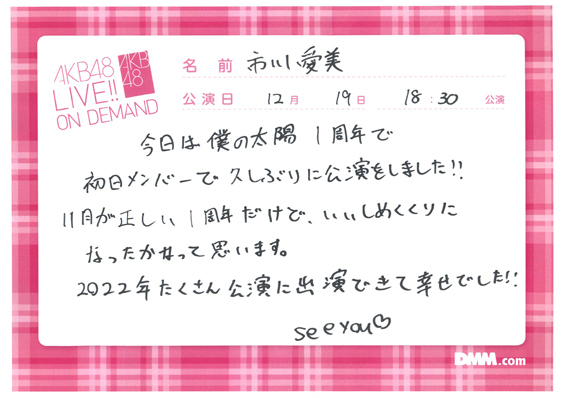 AKB48
LIVE!!
ON DEMAND
AKB
48
名前 市川愛美
公演日 12月 19日 18:30 公演
今日は僕の太陽 1周年で
初日メンバーで久しぶりに公演をしました!!
11月が正しい1周年だけど、いいしめくくりに
なったかなって思います。
2022年たくさん公演に出演できて幸せでした!!
see you♡
DMM.com